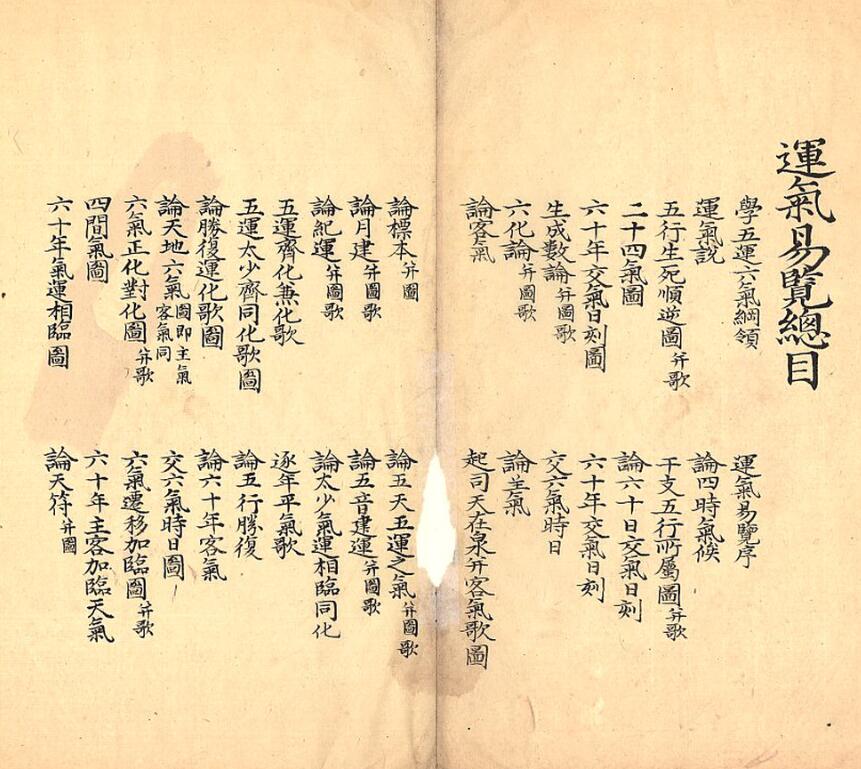 運氣易覽總目
學五運六氣綱領
運氣易覽序
運氣說
論四時氣候
五行生死順逆圖并歌
干支五行所屬圖并歌
二十四氣圖
論六十日交氣日刻
六十年交氣日刻圖
六十年交氣日刻
生成數論并圖歌
交六氣時日
六化論并圖歌
論主氣
論客氣
起司天在泉并客氣歌圖
論標本并圖
論五天五運之氣并圖歌
論月建并圖歌
論五音建運并圖歌
論紀運并圖歌
論太少氣運相臨同化
五運齊化兼化歌
逐年平氣歌
五運太少齊同化歌圖
論五行勝復
論勝復運化歌圖
論六十年客氣
論天地六氣圖即主氣客氣同
交六氣時日圖
六氣正化對化圖并歌
六氣遷移加臨圖并歌
四間氣圖
六十年主客加臨天氣
六十年氣運相臨圖
論天符并圖